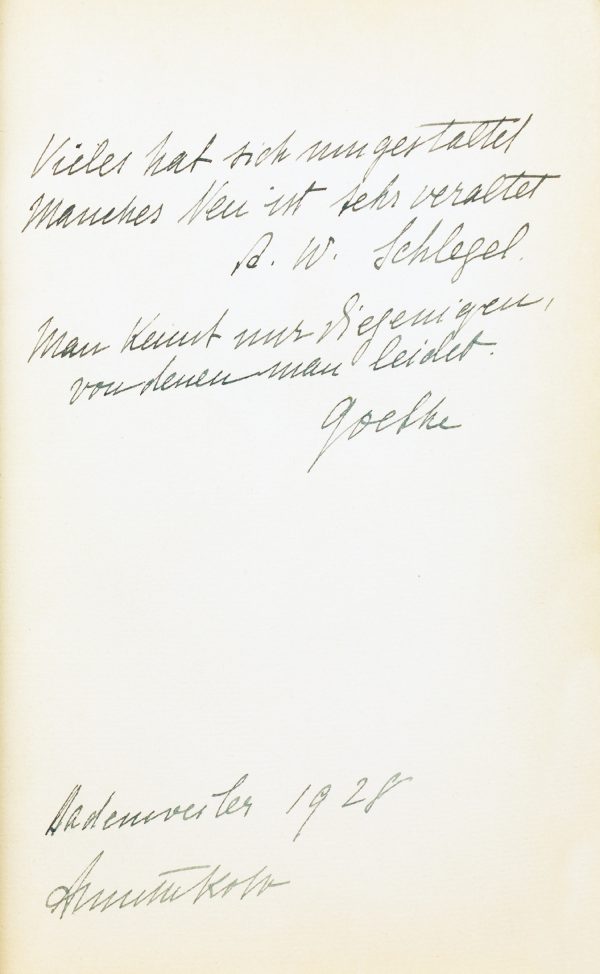 Vieles hat sich umgestaltet
Manches Neu ist sehr veraltet
A. W. Schlegel.
Man kennt nur diejenigen,
von denen man leidet.
Goethe
Badenweiler 1928
Annette Kolb